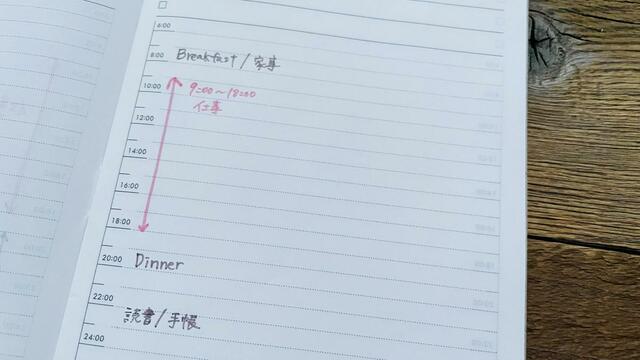 6:00
8:00 Breakfast / 家事
10:00 9:00～18:00
仕事
12:00
14:00
16:00
18:00
20:00 Dinner
22:00
読書/手帳
24:00